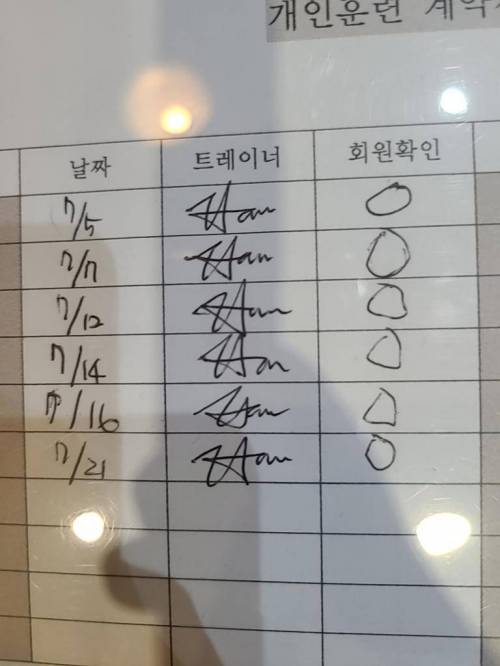 개인훈련 계약
날짜 트레이너 회원확인
7/5 Han O
7/7 Han O
7/12 Han O
7/14 Han O
7/16 Han O
7/21 Han O